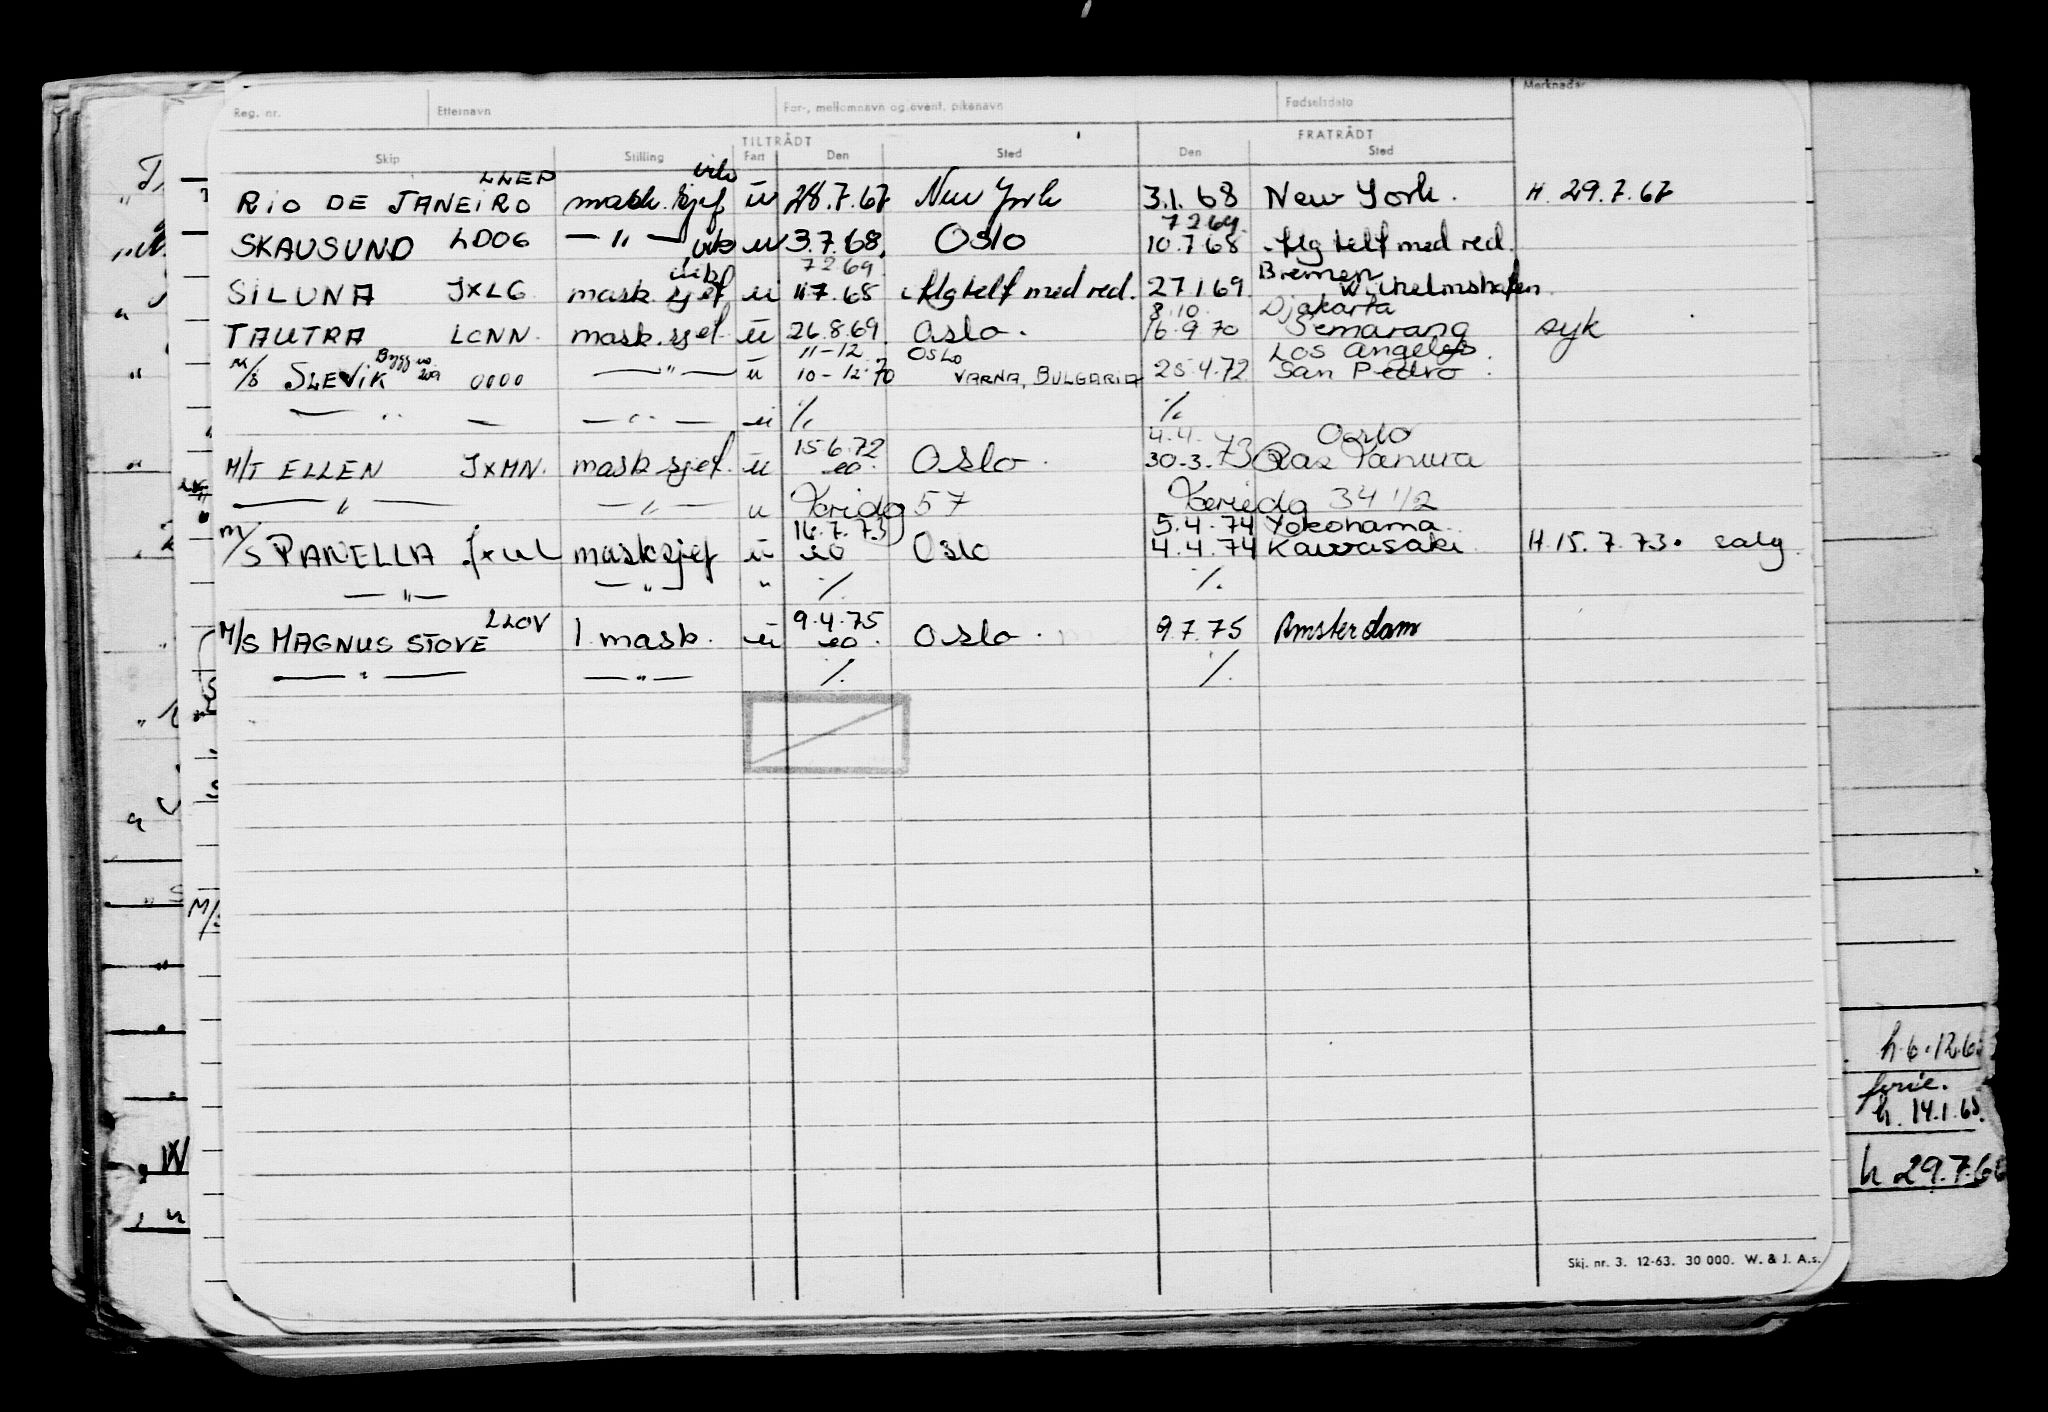 Reg. nr. Etternavn For-, mellomnavn og event. pikenavn Fødselsdato Merknader
TILTRÅDT FRATRÅDT
Skip Stilling Fart Den Sted Den Sted
RIO DE JANEIRO LLEP mask. sjef vik ü 28.7.67 New York 3.1.68 New York. H. 29.7.67
7 2 69
SKAUSUND LDOG — " — vik ü 3.7.68. Oslo 10.7 68 Alg telf med red.
7 2 69 Bremen
SILUNA JXLG mask. sjef vik ü 11 7. 68 Alg telf med red. 27 1 69 Wilhelmshafen.
8.10. Djakarta
TAUTRA LCNN. mask. sjef. ü 26.8.69 Oslo. 16.9.70 Semarang syk
Bygg no 209 11-12 Oslo Los Angeles
M/S SLEVIK 0000 — " — ü 10-12-70 VARNA, BULGARIA 25.4.72 San Pedro.
— " — — " — ü % %
15.6.72 4.4. Oslo
M/T ELLEN JXMN. mask sjef. ü Oslo. 30.3.73 Ras Tanura
— " — — " — u Feriedg 57 Feriedg 34 1/2
16.7.73 5.4.74 Yokohama
M/S PANELLA JXUL mask sjef ü Oslo 4.4.74 Kawasaki H. 15.7.73. salg.
— " — — " — " % %
LLOV 9.4.75
M/S MAGNUS STOVE 1. mask. ü Oslo. 9.7.75 Amsterdam
— " — — " — % %
h. 6.12.6
ferie.
h. 14.1.65
h 29.7.66
Skj. nr. 3. 12-63. 30 000. W. & J. A.s.